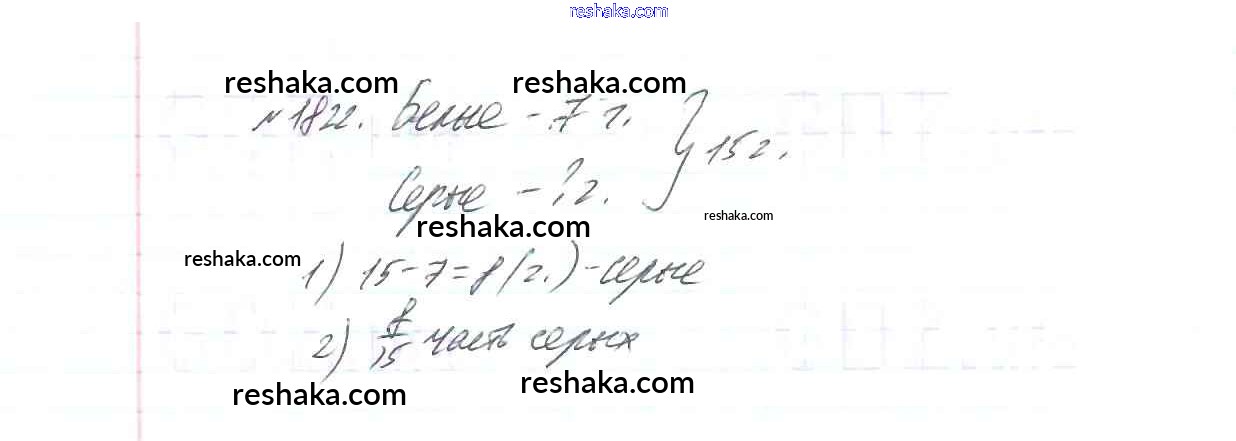 reshaka.com
reshaka.com reshaka.com
№1822. Белые - 7 г. } 15 г.
Серые - ? г.
reshaka.com
reshaka.com
reshaka.com
1) 15 - 7 = 8 (г.) - серые
2) 8/15 часть серых
reshaka.com
reshaka.com